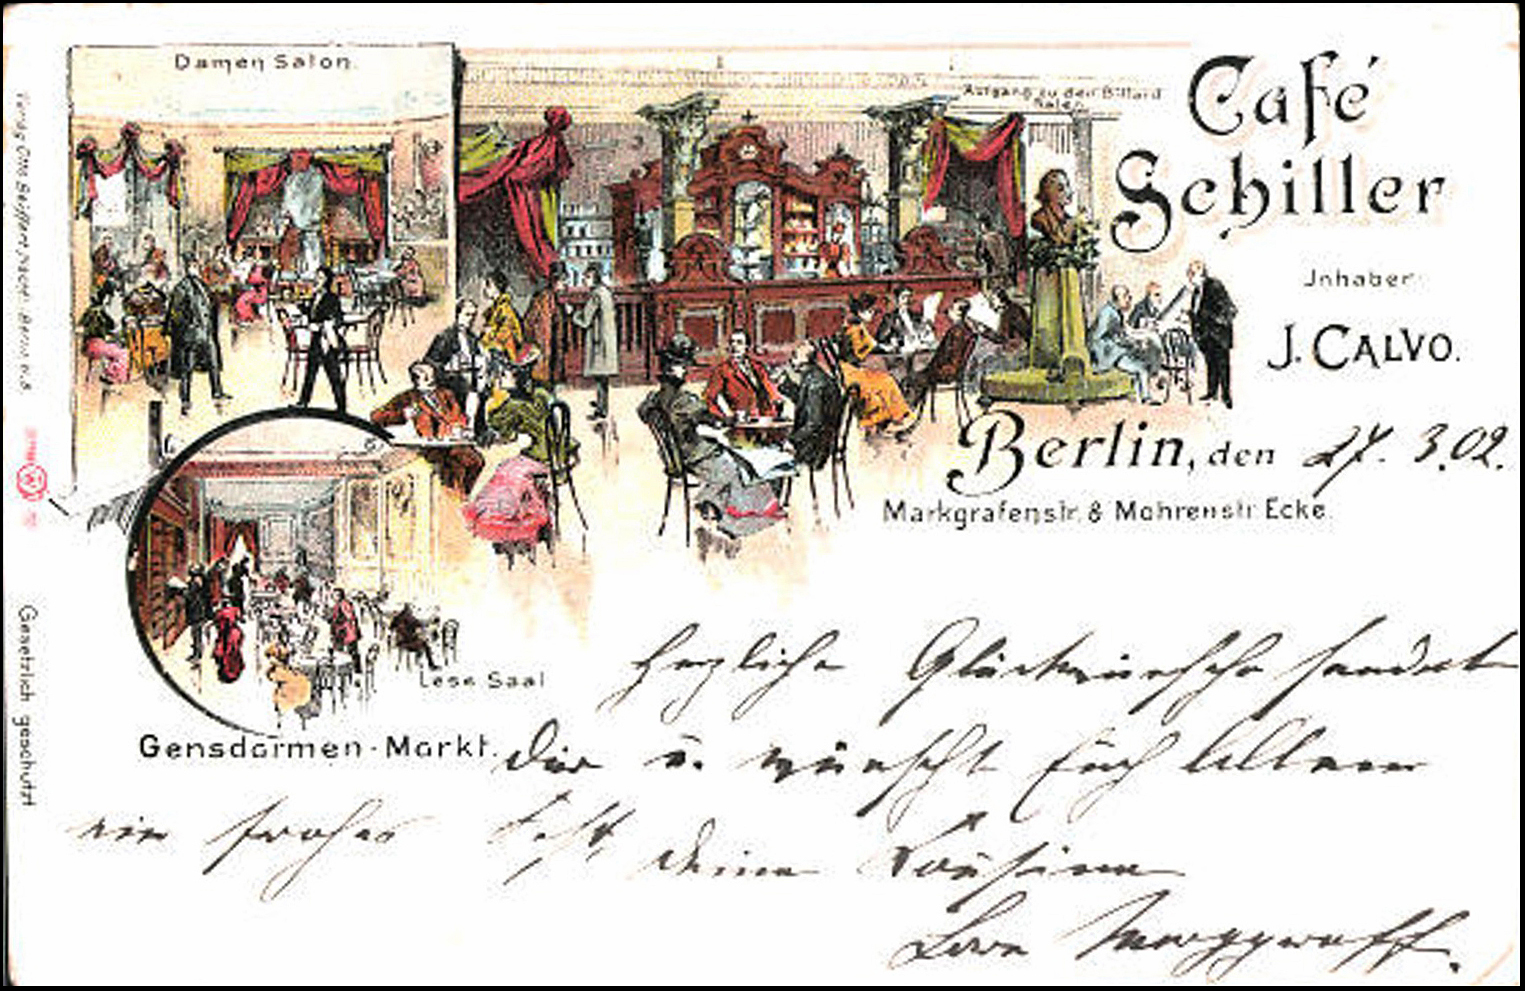 Damen Salon.
Aufgang zu den Billard
Salen
Café
Schiller
Jnhaber
J. CALVO.
Berlin, den 27. 3.02.
Markgrafenstr. & Mohrenstr. Ecke.
Lese Saal
Gensdarmen-Markt.
Herzliche Glückwünsche sendet
Dir u. wünscht Euch Allen
ein frohes Fest, Deine Cousine
Marggraff.
Gesetzlich geschützt
Verlag Otto Berlin